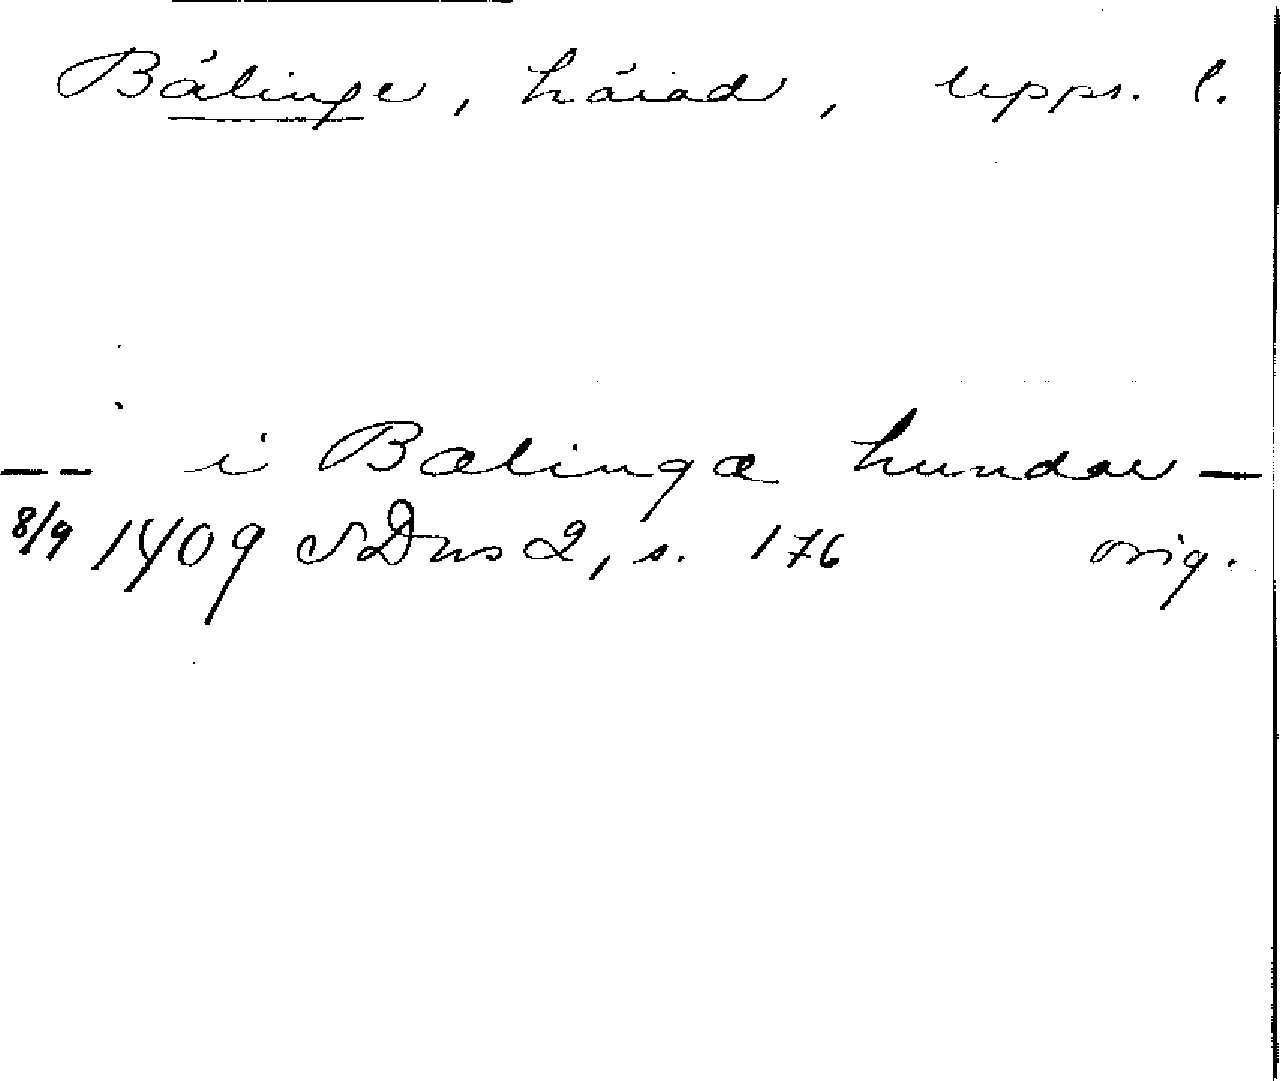 Bälinge, härad, Upps. l.
-- i Bælinga hundare —
8/9 1409 SDns 2, s. 176 orig.